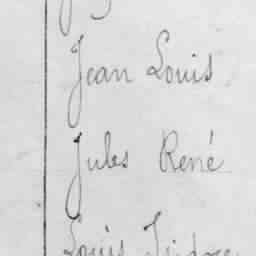 Jean Louis
Jules René
Louis Isidore